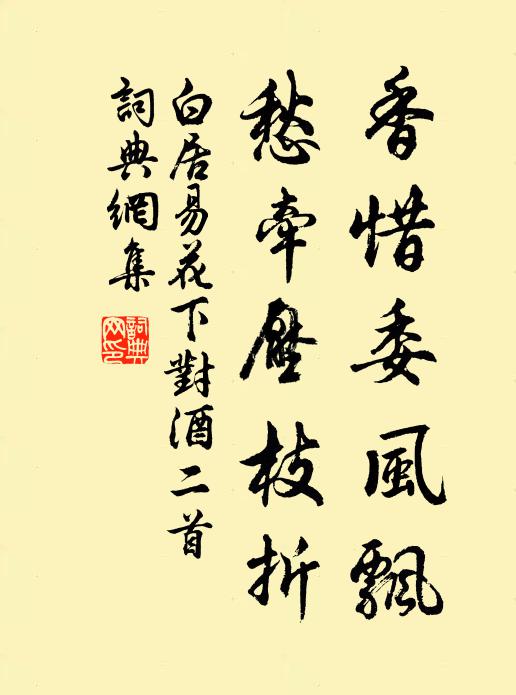 香惜委風飄
愁牽壓枝折
白居易花下對酒二首
詞典網集
詞典
网印